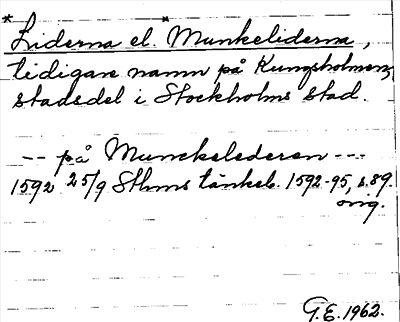 *Liderna el. *Munkeliderna,
tidigare namn på Kungsholmen,
stadsdel i Stockholms stad.
-- på Munckelederen ---
1592 25/9 Sthms tänkeb. 1592-95, s. 89.
orig.
G.E. 1962.